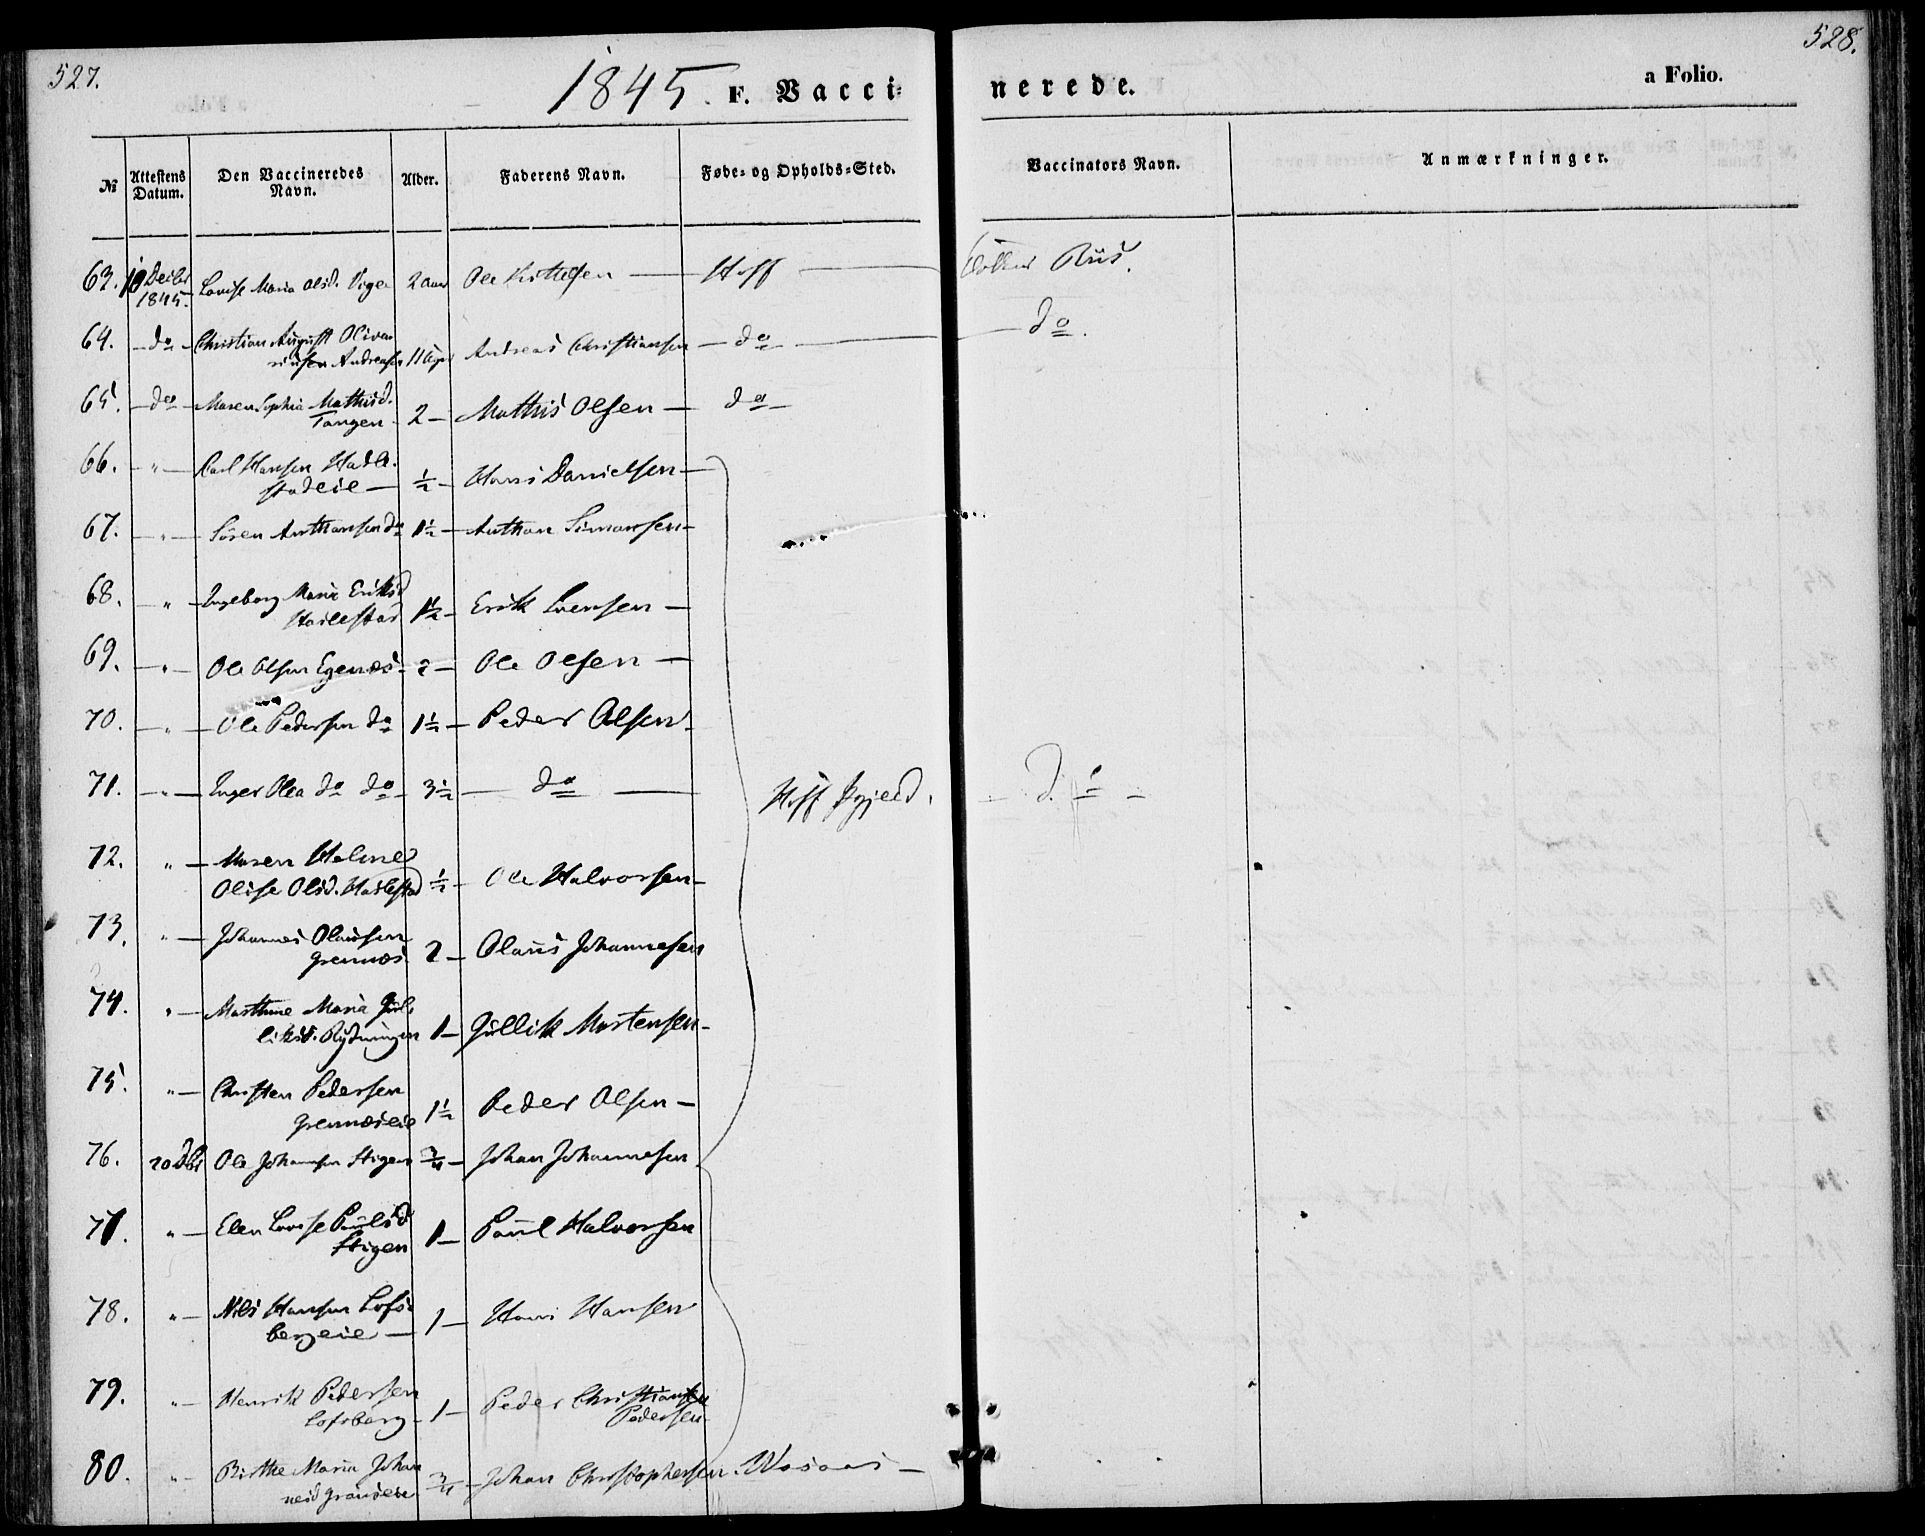 527.
1845. F. Vacci-
nerede.
528.
a Folio.
№ Attestens Datum. Den Vaccineredes Navn. Alder. Faderens Navn. Føde- og Opholds-Sted. Vaccinators Navn. Anmærkninger.
63. 10 Decbr 1845. Lovise Maria Olsd. 2 aar Ole Hoff Riis.
64. do Christian August Andreasen 11 Andreas Christiansen do do.
65. do Maren Sophia Mathisd.
Tangen 2 Mathis Olsen do
66. " Carl Hansen
1/2 Hans Danielsen
67. " Søren Anthonsen do 1 1/2 Anthon Simonsen
68. " Ingeborg Marie Eriksd
1 1/2 Erik
69. " Ole Olsen Egenæs 2 Ole Olsen
70. " Ole Pedersen do 1 1/2 Peder Olsen
71. " Inger Olea do do 3 1/2 do Hoff do
72. " Maren
Olise Olsd. 1/2 Ole Halvorsen
73. " Johannes Olausen
Grennæs 2 Olaus Johannesen
74. " Marthine Maria Gul-
liksd. Rydningen 1 Gullik Mortensen
75. " Christen Pedersen
Grennæseie 1 1/2 Peder Olsen
76. 20 Dbr Ole Johansen Stigen 3/4 Johan Johannesen
77. " Elen Lovise Paulsd
Stigen 1 Paul Halvorsen
78. " Nils Hansen Lofs-
bergeie 1 Hans Hansen
79. " Henrik Pedersen
Lofsberg 1 Peder Christiansen
Pedersen
80. " Birthe Maria Johan
nesd 3/4 Johan Christophersen